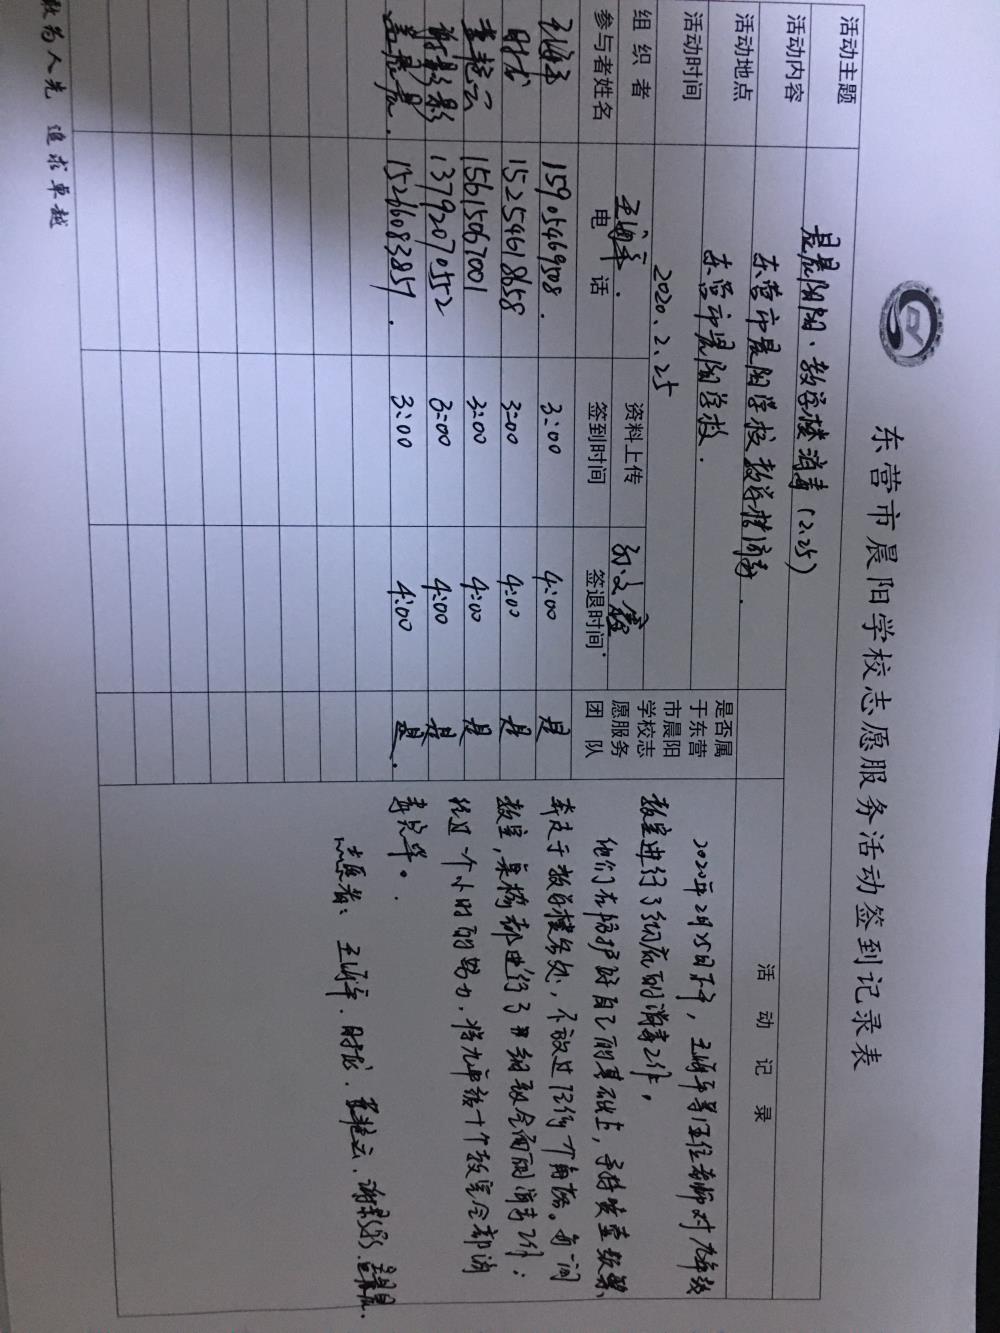 东营市晨阳学校志愿服务活动签到记录表
活动主题 晨阳·教学楼消毒(2.25)
活动内容 东营市晨阳学校教学楼消毒.
活动地点 东营市晨阳学校.
活动时间 2020.2.25
组织者 资料上传
参与者姓名 电话 签到时间 签退时间
是否属
于东营
市晨阳
学校志
愿服务
团队
活动记录
15905469508. 3:00 4:00 是
时龙 15254618658 3:00 4:00 是
15615067001 3:00 4:00 是
13792070552 3:00 4:00 是
15216083857. 3:00 4:00 是.
2020年2月25日下午,王 等五位老师对九年级
教室进行了彻底的消毒工作,
他们在防护好自己的基础上,手持
奔走于教学楼各处,不放过任何一个角落。每一间
教室,桌椅都进行了 细致全面的消毒工作;
经过一个小时的努力,将九年级十个教室全部消
毒完毕。
志愿者:王 .时龙. 艳云.谢 影.
敢为人先 追求卓越